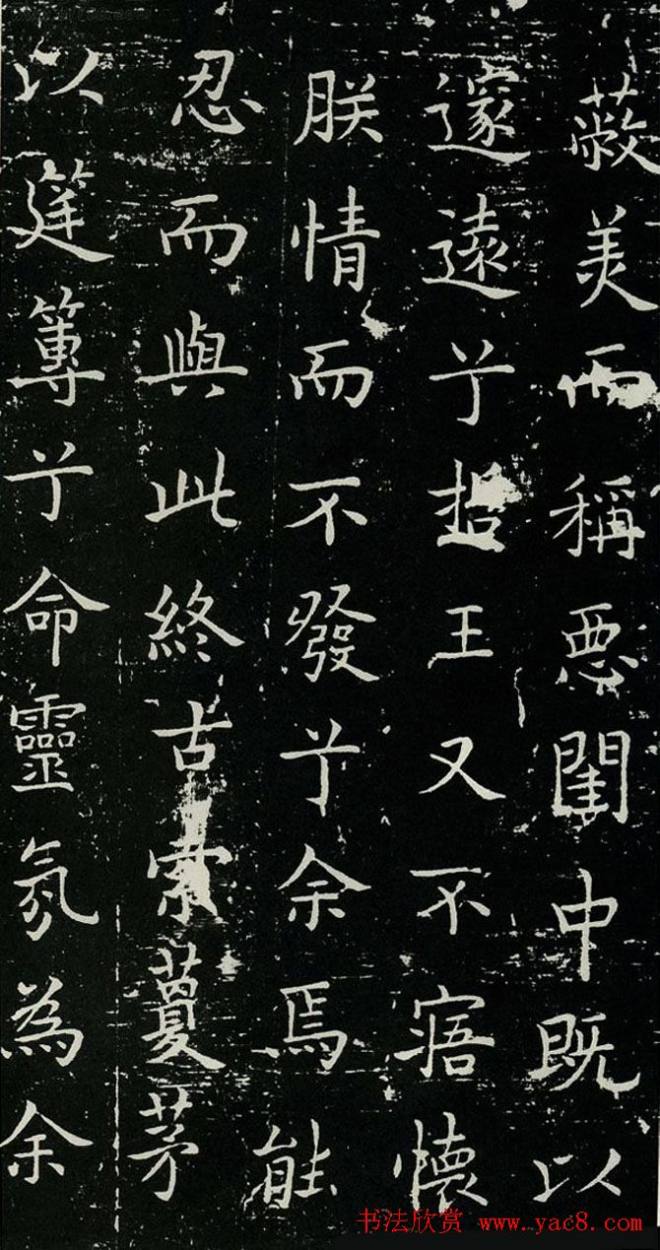 蔽美而稱惡閨中既以
邃遠兮哲王又不寤懷
朕情而不發兮余焉能
忍而與此終古索藑茅
以筳篿兮命靈氛為余
书法欣赏 www.yac8.com